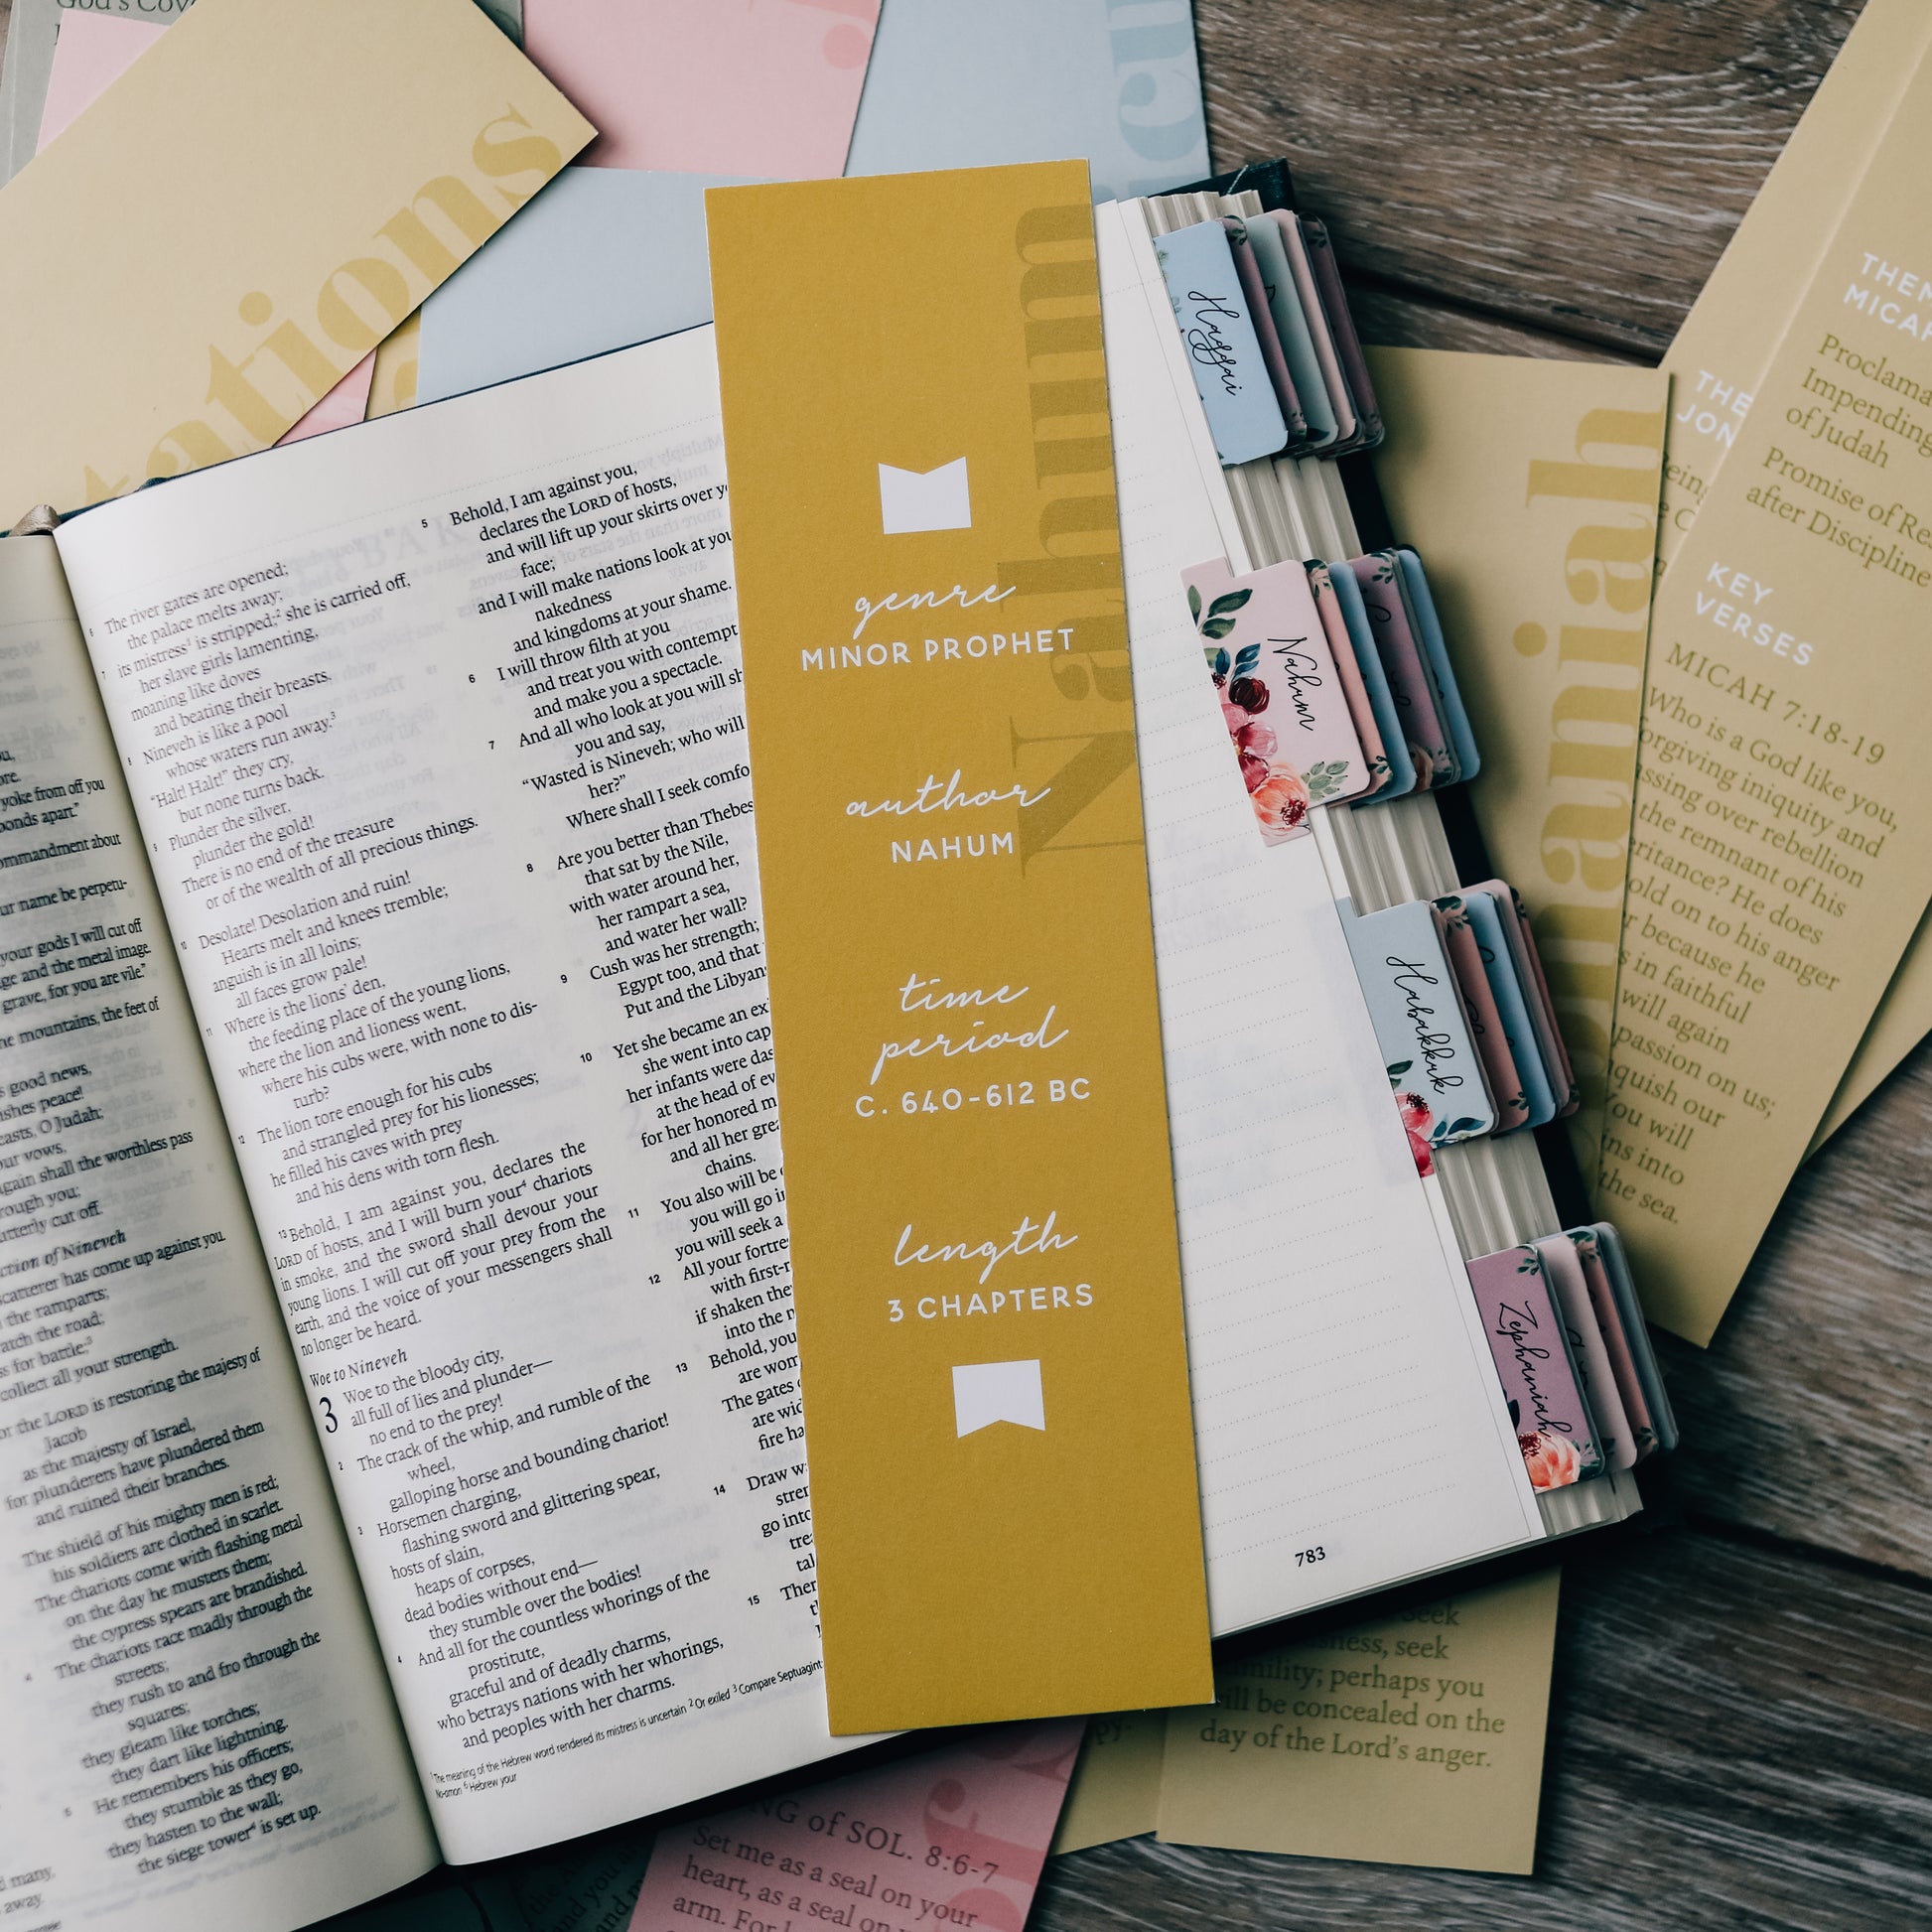 God's Cov
tations
Nahum
genre
MINOR PROPHET
author
NAHUM
time
period
C. 640-612 BC
length
3 CHAPTERS
Haggai
Nahum
Habakkuk
Zephaniah
yoke from off you
onds apart."
ommandment about
ur name be perpetu-
your gods I will cut off
ge and the metal image.
grave, for you are vile."
he mountains, the feet of
s good news,
ishes peace!
easts, O Judah;
our vows,
gain shall the worthless pass
rough you;
utterly cut off.
ction of Nineveh
scatterer has come up against you.
the ramparts;
atch the road;
s for battle;3
collect all your strength.
or the LORD is restoring the majesty of
Jacob
as the majesty of Israel,
for plunderers have plundered them
and ruined their branches.
The shield of his mighty men is red;
his soldiers are clothed in scarlet.
The chariots come with flashing metal
on the day he musters them;
the cypress spears are brandished.
4 The chariots race madly through the
streets;
they rush to and fro through the
squares;
they gleam like torches;
they dart like lightning.
5 He remembers his officers;
they stumble as they go,
they hasten to the wall;
the siege tower4 is set up.
6 The river gates are opened;
the palace melts away;
7 its mistress1 is stripped;2 she is carried off,
her slave girls lamenting,
moaning like doves
and beating their breasts.
8 Nineveh is like a pool
whose waters run away.3
"Halt! Halt!" they cry,
but none turns back.
9 Plunder the silver,
plunder the gold!
There is no end of the treasure
or of the wealth of all precious things.
10 Desolate! Desolation and ruin!
Hearts melt and knees tremble;
anguish is in all loins;
all faces grow pale!
11 Where is the lions' den,
the feeding place of the young lions,
where the lion and lioness went,
where his cubs were, with none to dis-
turb?
12 The lion tore enough for his cubs
and strangled prey for his lionesses;
he filled his caves with prey
and his dens with torn flesh.
13 Behold, I am against you, declares the
LORD of hosts, and I will burn your4 chariots
in smoke, and the sword shall devour your
young lions. I will cut off your prey from the
earth, and the voice of your messengers shall
no longer be heard.
Woe to Nineveh
3 Woe to the bloody city,
all full of lies and plunder—
no end to the prey!
2 The crack of the whip, and rumble of the
wheel,
galloping horse and bounding chariot!
3 Horsemen charging,
flashing sword and glittering spear,
hosts of slain,
heaps of corpses,
dead bodies without end—
they stumble over the bodies!
4 And all for the countless whorings of the
prostitute,
graceful and of deadly charms,
who betrays nations with her whorings,
and peoples with her charms.
5 Behold, I am against you,
declares the LORD of hosts,
and will lift up your skirts over y
face;
and I will make nations look at you
nakedness
and kingdoms at your shame.
6 I will throw filth at you
and treat you with contempt
and make you a spectacle.
7 And all who look at you will sh
you and say,
"Wasted is Nineveh; who will
her?"
Where shall I seek comfo
8 Are you better than Thebes
that sat by the Nile,
with water around her,
her rampart a sea,
and water her wall?
9 Cush was her strength;
Egypt too, and that
Put and the Libyan
10 Yet she became an ex
she went into cap
her infants were das
at the head of ev
for her honored m
and all her grea
chains.
11 You also will be
you will go i
you will seek a
12 All your fortre
with first-r
if shaken they
into the
13 Behold, you
are wom
The gates
are wid
fire ha
14 Draw w
stren
go into
tre
tal
15 Ther
1 The meaning of the Hebrew word rendered its mistress is uncertain 2 Or exiled 3 Compare Septuagint
No-amon 6 Hebrew your
783
haniah
THE
JON
THEM
MICAH
Proclama
Impending
of Judah
Promise of Res
after Discipline
KEY
VERSES
MICAH 7:18-19
Who is a God like you,
orgiving iniquity and
assing over rebellion
the remnant of his
eritance? He does
old on to his anger
r because he
s in faithful
will again
passion on us;
quish our
You will
ins into
the sea.
Seek
ness, seek
mility; perhaps you
ill be concealed on the
day of the Lord's anger.
NG of SOL. 8:6-7
Set me as a seal on your
heart, as a seal on y
arm. For l